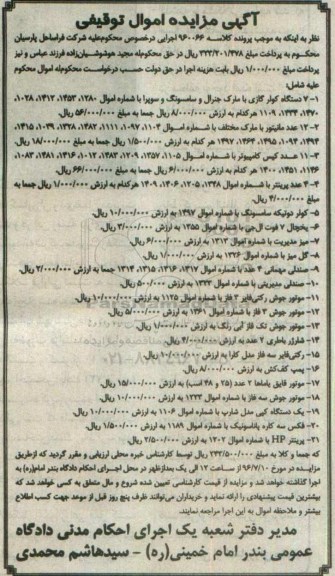 آگهی مزایده اموال توقیفی
نظر به اینکه به موجب پرونده کلاسه ۹۶۰۰۶۶ اجرایی درخصوص محکوم‌علیه شرکت فراساحل پارسیان
محکوم به پرداخت مبلغ ۳۲۳/۲۰۱/۴۷۸ ریال در حق محکوم‌له مجید هوشوشیان‌زاده فرزند عباس و نیز
پرداخت مبلغ ۱/۰۰۰/۰۰۰ ریال بابت هزینه اجرا در حق دولت حسب درخواست محکوم‌له اموال محکوم
علیه شامل:
۱- ۷ دستگاه کولر گازی با مارک جنرال و سامسونگ و سوپرا با شماره اموال ۱۲۸۰، ۱۴۵۳، ۱۴۱۲، ۱۰۲۸،
۱۴۷۰، ۱۴۳۳، ۱۱۰۹ هر کدام به ارزش ۸/۰۰۰/۰۰۰ ریال جمعا به مبلغ ۵۶/۰۰۰/۰۰۰ ریال.
۲- ۱۲ عدد مانیتور با مارک مختلف با شماره اموال ۱۱۰۴، ۱۰۹۷، ۱۱۱۱، ۱۴۸۲، ۱۳۲۸، ۱۰۳۹، ۱۴۱۵،
۱۴۹۴، ۱۰۹۴، ۱۴۹۵، ۱۴۶۴، ۱۴۹۷ هر کدام به ارزش ۱/۵۰۰/۰۰۰ ریال جمعا به مبلغ ۱۸/۰۰۰/۰۰۰ ریال.
۳- ۱۱ عدد کیس کامپیوتر با شماره اموال ۱۱۰۵، ۱۳۵۷، ۱۲۰۹، ۱۴۸۳، ۱۰۱۲، ۱۴۱۶، ۱۴۸۱، ۱۰۸۳،
۱۱۴۶، ۱۴۵۱، ۱۴۰۰ هر کدام به ارزش ۶/۰۰۰/۰۰۰ ریال جمعا به مبلغ ۶۶/۰۰۰/۰۰۰ ریال.
۴- ۴ عدد پرینتر با شماره اموال ۱۳۳۸، ۱۲۰۵، ۱۴۰۶، ۱۴۰۹ هرکدام به ارزش ۱/۰۰۰/۰۰۰ ریال جمعا به
مبلغ ۴/۰۰۰/۰۰۰ ریال.
۵- کولر دوتیکه سامسونگ با شماره اموال ۱۴۹۷ به ارزش ۱۰/۰۰۰/۰۰۰ ریال.
۶- یخچال ۷ فوت ال‌جی با شماره اموال ۱۲۵۵ به ارزش ۳/۰۰۰/۰۰۰ ریال.
۷- میز مدیریت با شماره اموال ۱۳۱۲ به ارزش ۶/۰۰۰/۰۰۰ ریال.
۸- گل میز با شماره اموال ۱۳۲۶ به ارزش ۱/۰۰۰/۰۰۰ ریال.
۹- صندلی مهمانی ۴ عدد با شماره اموال ۱۳۱۷، ۱۳۱۶، ۱۳۱۵، ۱۳۱۴ جمعا به ارزش ۲/۰۰۰/۰۰۰ ریال.
۱۰- صندلی مدیریتی با شماره اموال ۱۳۲۲ به ارزش ۵۰۰/۰۰۰ ریال.
۱۱- موتور جوش رکتی‌فایر ۳ فاز با شماره اموال ۱۱۲۵ به ارزش ۱۰/۰۰۰/۰۰۰ ریال.
۱۲- موتور جوش ۳ فاز با شماره اموال ۱۳۶۱ به ارزش ۵/۰۰۰/۰۰۰ ریال.
۱۳- موتور جوش تک فاز آبی رنگ به ارزش ۱/۰۰۰/۰۰۰ ریال.
۱۴- شارژر باطری ۲ عدد به ارزش ۴/۰۰۰/۰۰۰ ریال.
۱۵- رکتی‌فایر سه فاز مدل کارا به ارزش ۱۰/۰۰۰/۰۰۰ ریال.
۱۶- پمپ کف‌کش به ارزش ۸/۰۰۰/۰۰۰ ریال.
۱۷- موتور قایق یاماها ۲ عدد (۲۵ و ۴۸ اسب) به ارزش ۱۵/۰۰۰/۰۰۰ ریال.
۱۸- موتور جوش سه فاز با شماره اموال ۱۳۳۳ به ارزش ۱۰/۰۰۰/۰۰۰ ریال.
۱۹- یک دستگاه کپی مدل شارپ با شماره اموال ۱۱۰۶ به ارزش ۱۰/۰۰۰/۰۰۰ ریال.
۲۰- فکس سه کاره پاناسونیک با شماره اموال ۱۱۸۹ به ارزش ۱/۵۰۰/۰۰۰ ریال.
۲۱- پرینتر HP با شماره اموال ۱۲۰۲ به ارزش ۲/۵۰۰/۰۰۰ ریال.
که جمعا و کلا به مبلغ ۲۴۲/۵۰۰/۰۰۰ ریال توسط کارشناس خبره محلی ارزیابی و مقرر گردید که ازطریق
مزایده در مورخ ۹۶/۷/۱۰ از ساعت ۱۲ الی یک بعدازظهر در محل اجرای احکام دادگاه بندر امام(ره) به
اجرا گذاشته خواهد شد و مزایده از قیمت کارشناسی تعیین شده شروع و مال متعلق به کسی خواهد شد که
بیشترین قیمت پیشنهادی را ارائه نماید و خریداران می‌توانند ظرف پنج روز قبل از موعد جهت کسب اطلاع
بیشتر و ملاحظه اموال به این اجرا مراجعه نمایند.
مدیر دفتر شعبه یک اجرای احکام مدنی دادگاه
عمومی بندر امام خمینی(ره) – سیدهاشم محمدی